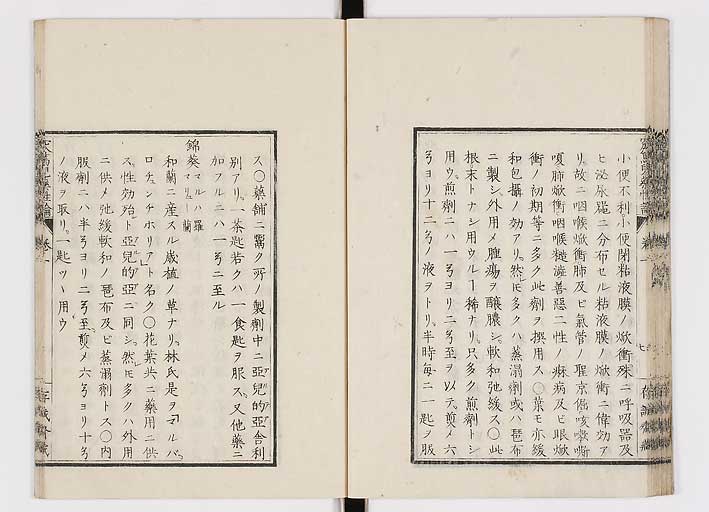 小便不利小便閉粘液膜ノ焮衝殊ニ呼吸器及
ヒ泌尿器ニ分布セル粘液膜ノ焮衝ニ偉効ア
リ故ニ咽喉焮衝肺及ヒ氣管ノ聖京倔咳嗽嘶
嗄肺焮衝咽喉善惡二性ノ痳病及ヒ眼焮
衝ノ初期等ニ多ク此劑ヲ撰用ス○葉モ亦緩
和包攝ノ効アリ然モ多クハ蒸溻劑或ハ琶布
ニ製シ外用メ腫瘍ヲ釀膿シ軟和弛緩ス○此
根末トナシ用ウルヿ稀ナリ只多ク煎劑トシ
用ウ煎劑ニハ一ヨリ二至ヲ以テ煎メ六
ヨリ十二ノ液ヲトリ半時每ニ一匙ヲ服
ス○藥舖ニ鬻ク所ノ製劑中ニ亞兒的亞舎利
別アリ一茶匙若クハ一食匙ヲ服ス又他藥ニ
加フルニハ一ニ至ル
錦葵 マルハ 羅 マリュー 蘭
和蘭ニ産スル歳植ノ草ナリ林氏是ヲマルバ
ロチュンチホリアト名ク○花葉共ニ藥用ニ供
ス性効殆ト亞兒的亞ニ同シ然モ多クハ外用
ニ供メ弛緩軟和ノ琶布及ヒ蒸溻劑トス○内
服劑ニハ半ヨリ二至煎メ六ヨリ十
ノ液ヲ取リ一匙ツヽ用ウ